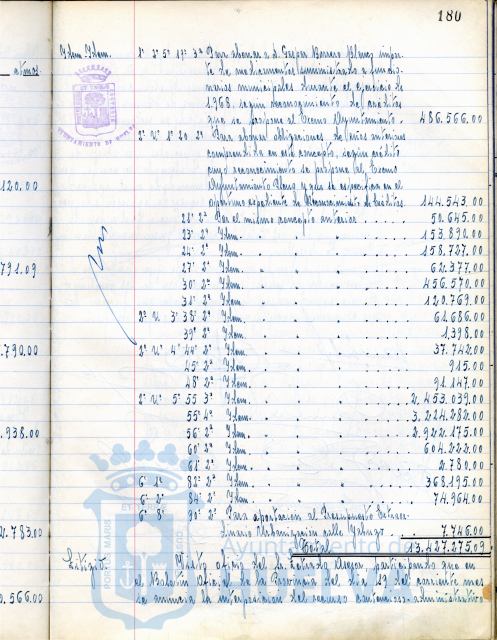 180
Idem. Idem.
1º 2º 5º 17º 3ª Para abonar a d. Gaspar Barrero Blanco, impor-
te de medicamentos suministrados a funcio-
narios municipales durante el ejercicio de
1.968, según reconocimiento de créditos
que se propone al Excmo Ayuntamiento. 486.566.00
Para abonar obligaciones de años anteriores
comprendida en este concepto, según crédito
cuyo reconocimiento se propone al Excmo
Ayuntamiento Pleno y que se especifican en el
oportuno expediente de Reconocimiento de créditos. 144.543.00
21º 2ª Por el mismo concepto anterior . . . . . 50.645.00
23º 2ª Idem. . . . . 153.890.00
24º 2ª Idem. . . . . 158.727.00
27º 2ª Idem. . . . . 62.377.00
30º 2ª Idem. . . . . 456.570.00
31º 2ª Idem. . . . . 120.769.00
3º 38º 2ª Idem. . . . . 61.686.00
39º 2ª Idem. . . . . 1.398.00
4º 44º 2ª Idem. . . . . 37.742.00
45º 2ª Idem. . . . . 915.00
48º 2ª Idem. . . . . 91.147.00
5º 55 3ª Idem. . . . . 2.453.039.00
55 4ª Idem. . . . . 3.224.282.00
56 2ª Idem. . . . . 2.922.175.00
60º 2ª Idem. . . . . 604.222.00
61º 2ª Idem. . . . . 2.780.00
6º 1º 82º 2ª Idem. . . . . 368.195.00
6º 2º 84º 2ª Idem. . . . . 74.964.00
6º 8º 90º 2ª Para aportación al Presupuesto Extraor-
dinario Urbanización calle 7.746.00
Total 13.427.275.09
Litigio. Visto oficio del Sr. Letrado Asesor, participando que en
el Boletín Oficial de la Provincia del día 29 del corriente mes
se anuncia la interposición del recurso contencioso-administrativo
120.00
791.09
.790.00
.938.00
.783.00
.566.00